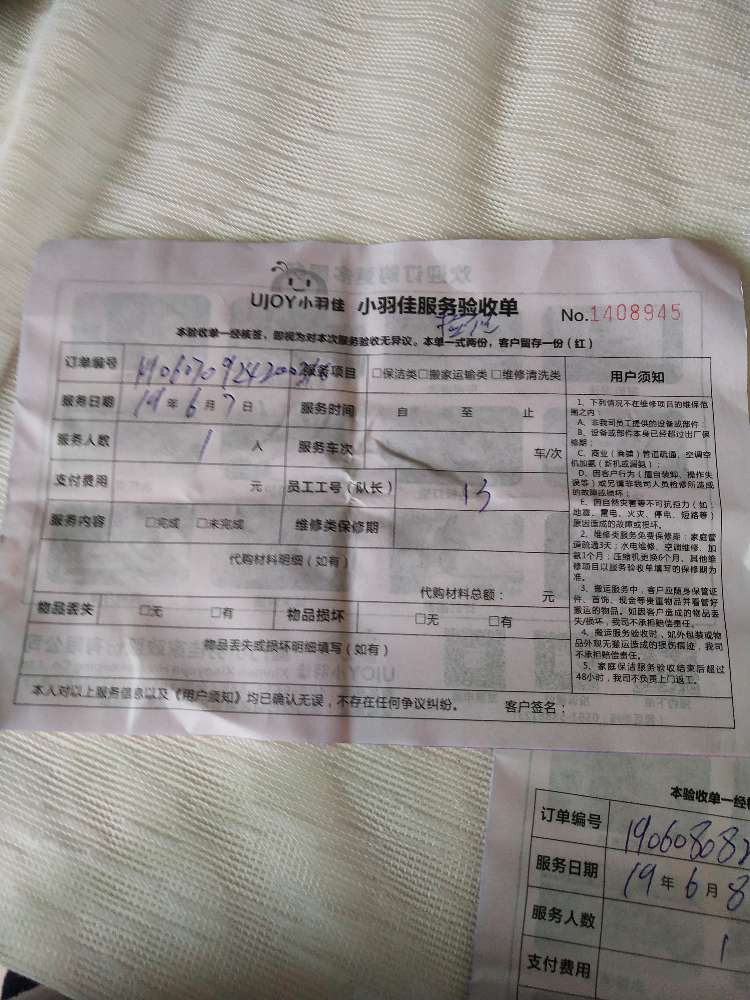 UJOY小羽佳 小羽佳服务验收单 No.1408945
本验收单一经核签，即视为对本次服务验收无异议。本单一式两份，客户留存一份（红）
订单编号 服务项目 □保洁类□搬家运输类□维修清洗类 用户须知
服务日期 19年6月7日 服务时间 自 至 止
服务人数 1 人 服务车次 车/次
支付费用 元 员工工号（队长） 13
服务内容 □完成 □未完成 维修类保修期
代购材料明细（如有）
代购材料总额： 元
物品丢失 □无 □有 物品损坏 □无 □有
物品丢失或损坏明细填写（如有）
本人对以上服务信息以及《用户须知》均已确认无误，不存在任何争议纠纷。 客户签名：
1、下列情况不在维修项目的维保范
围之内：
A、非我司员工提供的设备或部件
B、设备或部件本身已经超过出厂保
修期；
C、商业（商铺）管道疏通，空调空
机加氨（新机或漏氨）；
D、因客户行为（擅自装卸、操作失
误等）或另请非我司人员检修所造成
的故障或损坏；
E、因自然灾害等不可抗拒力（如：
地震、雷电、火灾、停电、短路等）
原因造成的故障或损坏。
2、维修类服务免费保修期：家庭管
道疏通3天；水电维修、空调维修、加
氨1个月；压缩机更换6个月，其他维
修项目以服务验收单填写的保修期为
准。
3、搬运服务中，客户应随身保管证
件、首饰、现金等贵重物品并看管好
搬运的物品。如因客户造成的物品丢
失/损坏，我司不承担赔偿责任。
4、搬运服务验收时，如外包装或物
品外观无搬运造成的损伤痕迹，我司
不承担赔偿责任。
5、家庭保洁服务验收结束后超过
48小时，我司不负责上门返工。
本验收单一经
订单编号 19060808
服务日期 19年6月8
服务人数 1
支付费用